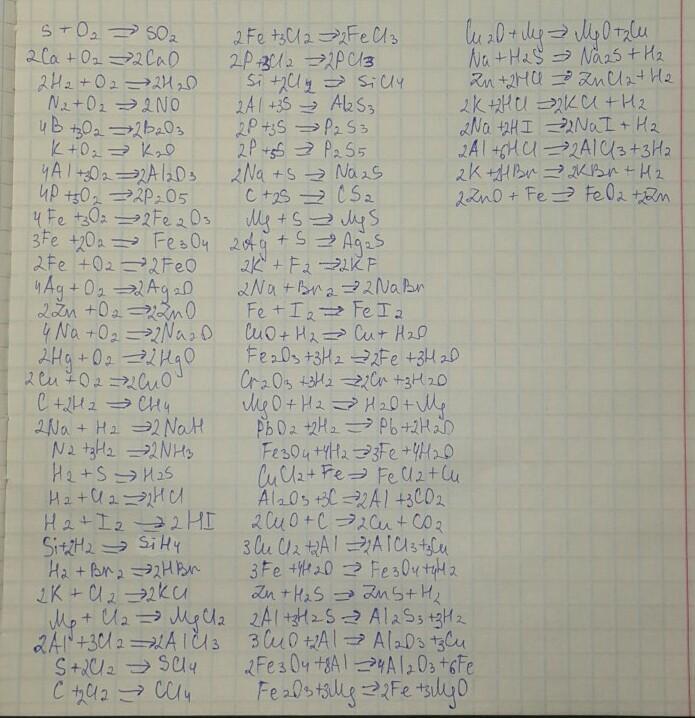 S + O2 => SO2
2Ca + O2 => 2CaO
2H2 + O2 => 2H2O
N2 + O2 => 2NO
4B + 3O2 => 2B2O3
K + O2 => K2O
4Al + 3O2 => 2Al2O3
4P + 5O2 => 2P2O5
4Fe + 3O2 => 2Fe2O3
3Fe + 2O2 => Fe3O4
2Fe + O2 => 2FeO
4Ag + O2 => 2Ag2O
2Zn + O2 => 2ZnO
4Na + O2 => 2Na2O
2Hg + O2 => 2HgO
2Cu + O2 => 2CuO
C + 2H2 => CH4
2Na + H2 => 2NaH
N2 + 3H2 => 2NH3
H2 + S => H2S
H2 + Cl2 => 2HCl
H2 + I2 => 2HI
Si + 2H2 => SiH4
H2 + Br2 => 2HBr
2K + Cl2 => 2KCl
Mg + Cl2 => MgCl2
2Al + 3Cl2 => 2AlCl3
S + 2Cl2 => SCl4
C + 2Cl2 => CCl4
2Fe + 3Cl2 => 2FeCl3
2P + 3Cl2 => 2PCl3
Si + 2Cl2 => SiCl4
2Al + 3S => Al2S3
2P + 3S => P2S3
2P + 5S => P2S5
2Na + S => Na2S
C + 2S => CS2
Mg + S => MgS
2Ag + S => Ag2S
2K + F2 => 2KF
2Na + Br2 => 2NaBr
Fe + I2 => FeI2
CuO + H2 => Cu + H2O
Fe2O3 + 3H2 => 2Fe + 3H2O
Cr2O3 + 3H2 => 2Cr + 3H2O
MgO + H2 => H2O + Mg
PbO2 + 2H2 => Pb + 2H2O
Fe3O4 + 4H2 => 3Fe + 4H2O
CuCl2 + Fe => FeCl2 + Cu
Al2O3 + 3C => 2Al + 3CO2
2CuO + C => 2Cu + CO2
3CuCl2 + 2Al => 2AlCl3 + 3Cu
3Fe + 4H2O => Fe3O4 + 4H2
Zn + H2S => ZnS + H2
2Al + 3H2S => Al2S3 + 3H2
3CuO + 2Al => Al2O3 + 3Cu
2Fe3O4 + 8Al => 4Al2O3 + 6Fe
Fe2O3 + 3Mg => 2Fe + 3MgO
Cu2O + Mg => MgO + 2Cu
Na + H2S => Na2S + H2
Zn + 2HCl => ZnCl2 + H2
2K + 2HCl => 2KCl + H2
2Na + 2HI => 2NaI + H2
2Al + 6HCl => 2AlCl3 + 3H2
2K + 2HBr => 2KBr + H2
2ZnO + Fe => FeO2 + 2Zn